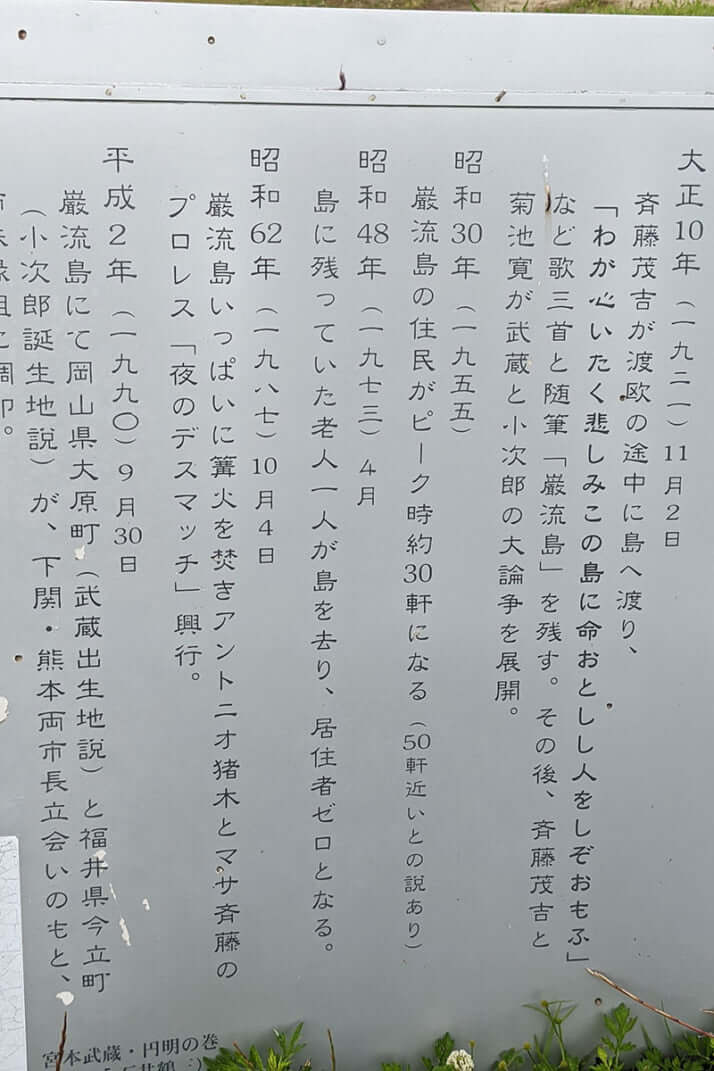 大正10年（一九二一）11月2日
斉藤茂吉が渡欧の途中に島へ渡り、
「わが心いたく悲しみこの島に命おとしし人をしぞおもふ」
など歌三首と随筆「巌流島」を残す。その後、斉藤茂吉と
菊池寛が武蔵と小次郎の大論争を展開。
昭和30年（一九五五）
巌流島の住民がピーク時約30軒になる（50軒近いとの説あり）
昭和48年（一九七三）4月
島に残っていた老人一人が島を去り、居住者ゼロとなる。
昭和62年（一九八七）10月4日
巌流島いっぱいに篝火を焚きアントニオ猪木とマサ斉藤の
プロレス「夜のデスマッチ」興行。
平成2年（一九九〇）9月30日
巌流島にて岡山県大原町（武蔵出生地説）と福井県今立町
（小次郎誕生地説）が、下関・熊本両市長立会いのもと、
調印。
宮本武蔵・円明の巻